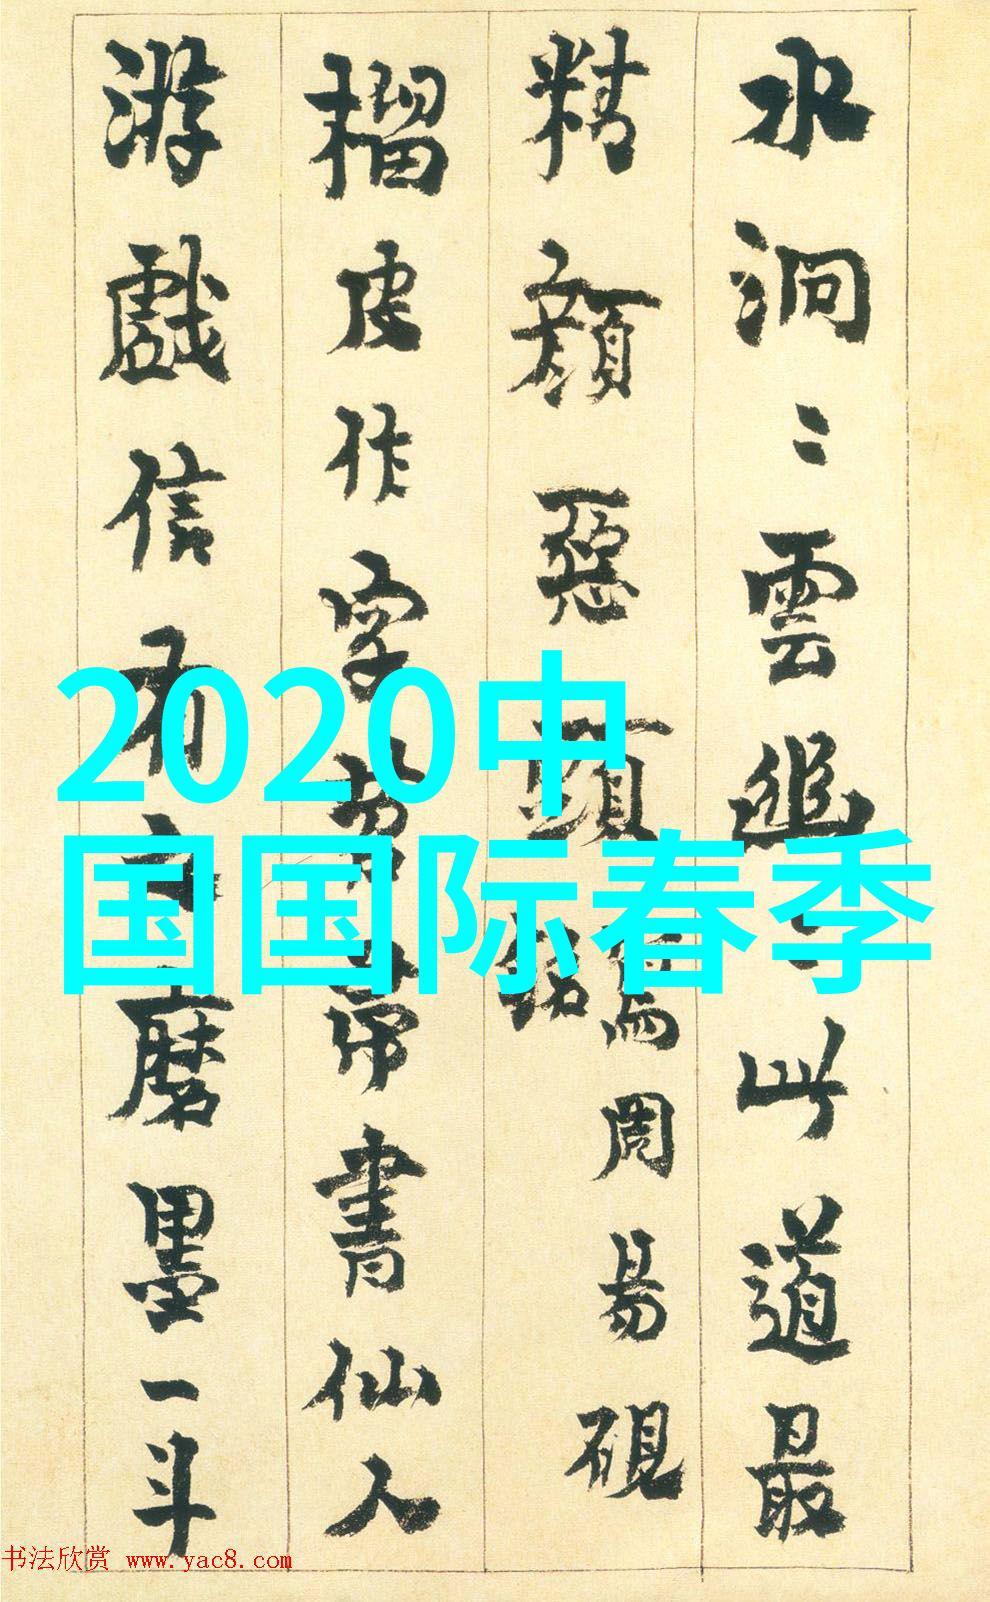 水洞〻雲幽〻此道最
精顏惡頭
為周易硯
銘
榴皮作字苕帚書仙人
游戲信有之磨墨一斗
2020中
国国际春季
书法欣赏 www.yac8.com